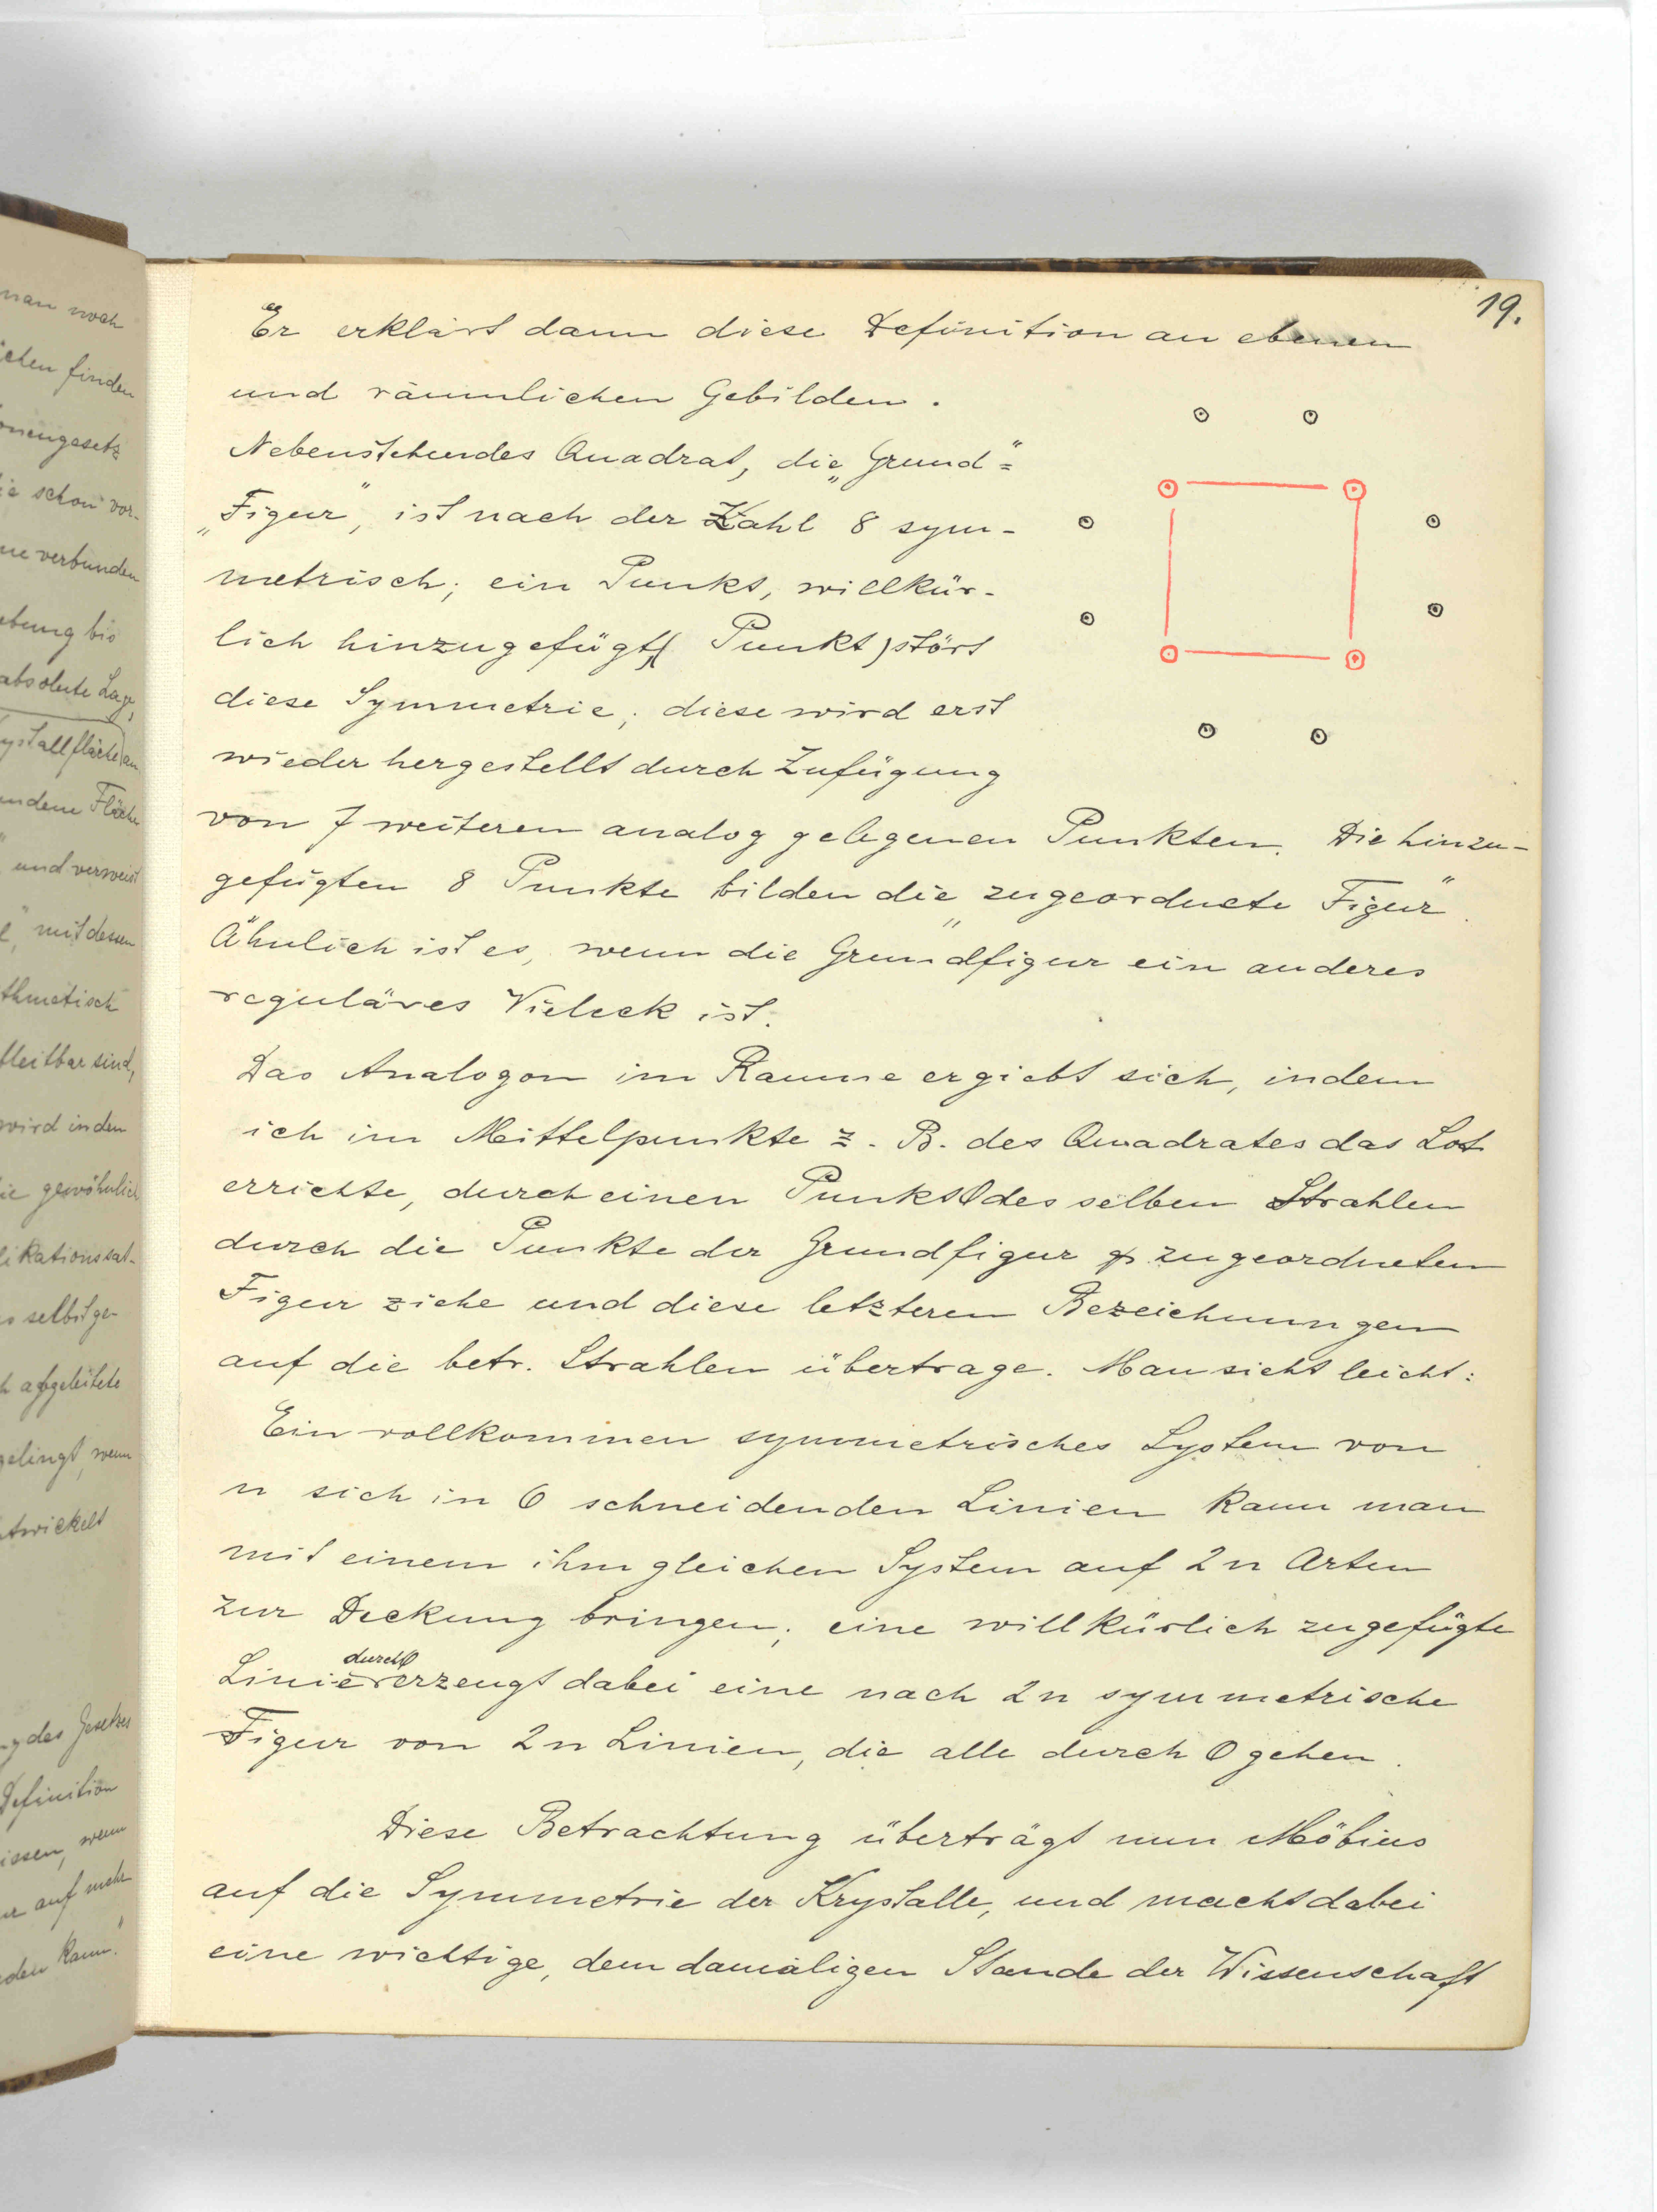 19.
Er erklärt dann diese Definition an ebenen
und räumlichen Gebilden.
Nebenstehendes Quadrat, die „Grund"=
„Figur", ist nach der Zahl 8 sym-
metrisch; ein Punkt, willkür-
lich hinzugefügt, (Punkt) stört
diese Symmetrie; diese wird erst
wieder hergestellt durch Zufügung
von 7 weiteren analog gelegenen Punkten. Die hinzu-
gefügten 8 Punkte bilden die „zugeordnete Figur".
Ähnlich ist es, wenn die Grundfigur ein anderes
reguläres Vieleck ist.
Das Analogon im Raume ergiebt sich, indem
ich im Mittelpunkte z. B. des Quadrates das Lot
errichte, durch einen Punkt O desselben Strahlen
durch die Punkte der Grundfigur zugeordneten
Figur ziehe und diese letzteren Bezeichnungen
auf die betr. Strahlen übertrage. Man sieht leicht:
Ein vollkommen symmetrisches System von
n sich in O schneidenden Linien kann man
mit einem ihm gleichen System auf 2n Arten
zur Deckung bringen; eine willkürlich zugefügte
durch O
Linie erzeugt dabei eine nach 2n symmetrische
Figur von 2n Linien, die alle durch O gehen.
Diese Betrachtung überträgt nun Möbius
auf die Symmetrie der Krystalle, und macht dabei
eine wichtige, dem damaligen Stande der Wissenschaft
man noch
finden
onengesetz
schon vor-
ne verbunden
ebung bis
absolute Lage,
ystallfläche an
Fläche
und verweist
mit dessen
thmetisch
bleitbar sind,
wird in den
gewöhnlich
kationssat-
selbst ge-
abgeleitete
gelingt, wenn
twickelt
des Gesetzes
Definition
issen, wenn
auf mehr
den kann."